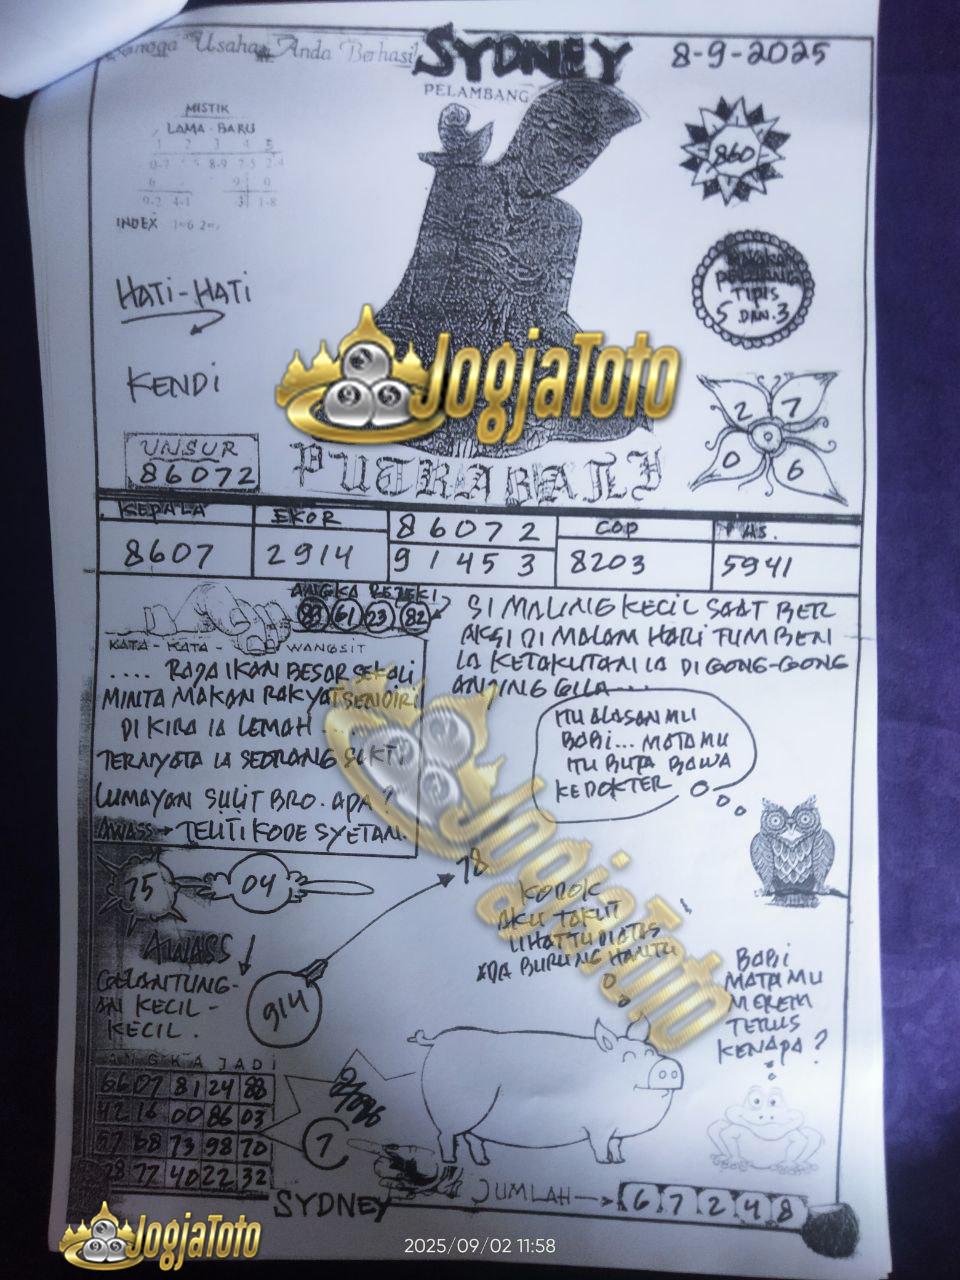 Semoga Usaha Anda Berhasil
SYDNEY
8-9-2025
PELAMBANG
MISTIK
LAMA - BARU
1 2 3 4 5
8-9 7-5 2-4
6
9-2 4-1 3 1-8
INDEX 1=6
860
HATI-HATI
TIPIS
5 DAN.3
KENDI
JogjaToto
2 7
0 6
UNSUR
86072
PUTRA BALI
KEPALA EKOR 86072 COP AS.
8607 2914 91453 8203 5941
ANGKA REZEKI
89 61 23 82
KATA - KATA - WANGSIT
.... RAJA IKAN BESAR SEKALI
MINTA MAKAN RAKYAT SENDIRI
DI KIRA IA LEMAH ....
TERNYATA IA SEORANG SAKTI
LUMAYAN SULIT BRO. APA?
AWASS → TELITI KODE SYETAN.
SI MALING KECIL SAAT BER
AKSI DI MALAM HARI TUMBEN
IA KETAKUTAN IA DI GONG-GONG
ANJING GILA....
ITU ALASAN MU
BABI... MATA MU
ITU BUTA BAWA
KEDOKTER
JogjaToto
75 04
78
KODOK
AKU TAKUT
LIHAT TU DIATAS
ADA BURUNG HANTU
AWASS
GALANTUNG-
AN KECIL -
KECIL.
914
BABI
MATA MU
MEREM
TERUS
KENAPA?
ANGKA JADI
66 07 81 24 88
42 16 00 86 03
57 68 73 98 70
28 77 40 22 32
7
SYDNEY
JUMLAH → 6 7 2 4 8
JogjaToto
2025/09/02 11:58